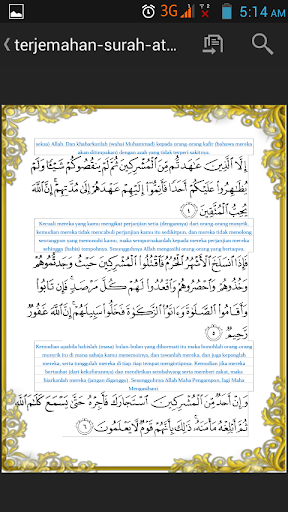 3G 5:14 AM
terjemahan-surah-at...
seksa) Allah. Dan khabarkanlah (wahai Muhammad) kepada orang-orang kafir (bahawa mereka
akan ditimpakan) dengan azab yang tidak terperi sakitnya.
إِلَّا ٱلَّذِينَ عَٰهَدتُّم مِّنَ ٱلْمُشْرِكِينَ ثُمَّ لَمْ يَنقُصُوكُمْ شَيْـًٔا وَلَمْ
يُظَٰهِرُوا۟ عَلَيْكُمْ أَحَدًا فَأَتِمُّوٓا۟ إِلَيْهِمْ عَهْدَهُمْ إِلَىٰ مُدَّتِهِمْ إِنَّ ٱللَّهَ
يُحِبُّ ٱلْمُتَّقِينَ ٤
Kecuali mereka yang kamu mengikat perjanjian setia (dengannya) dari orang-orang musyrik,
kemudian mereka tidak mencabuli perjanjian kamu itu sedikitpun, dan mereka tidak menolong
seorangpun yang memusuhi kamu, maka sempurnakanlah kepada mereka perjanjian mereka
sehingga (habis) tempohnya. Sesungguhnya Allah mengasihi orang-orang yang bertaqwa.
فَإِذَا ٱنسَلَخَ ٱلْأَشْهُرُ ٱلْحُرُمُ فَٱقْتُلُوا۟ ٱلْمُشْرِكِينَ حَيْثُ وَجَدتُّمُوهُمْ
وَخُذُوهُمْ وَٱحْصُرُوهُمْ وَٱقْعُدُوا۟ لَهُمْ كُلَّ مَرْصَدٍ فَإِن تَابُوا۟
وَأَقَامُوا۟ ٱلصَّلَوٰةَ وَءَاتَوُا۟ ٱلزَّكَوٰةَ فَخَلُّوا۟ سَبِيلَهُمْ إِنَّ ٱللَّهَ غَفُورٌ
رَّحِيمٌ ٥
Kemudian apabila habislah (masa) bulan-bulan yang dihormati itu maka bunuhlah orang-orang
musyrik itu di mana sahaja kamu menemuinya, dan tawanlah mereka, dan juga kepunglah
mereka, serta tunggulah mereka di tiap-tiap tempat mengintipnya. Kemudian jika mereka
bertaubat (dari kekufurannya) dan mendirikan sembahyang serta memberi zakat, maka
biarkanlah mereka (jangan diganggu). Sesungguhnya Allah Maha Pengampun, lagi Maha
Mengasihani.
وَإِنْ أَحَدٌ مِّنَ ٱلْمُشْرِكِينَ ٱسْتَجَارَكَ فَأَجِرْهُ حَتَّىٰ يَسْمَعَ كَلَٰمَ ٱللَّهِ
ثُمَّ أَبْلِغْهُ مَأْمَنَهُۥ ذَٰلِكَ بِأَنَّهُمْ قَوْمٌ لَّا يَعْلَمُونَ ٦